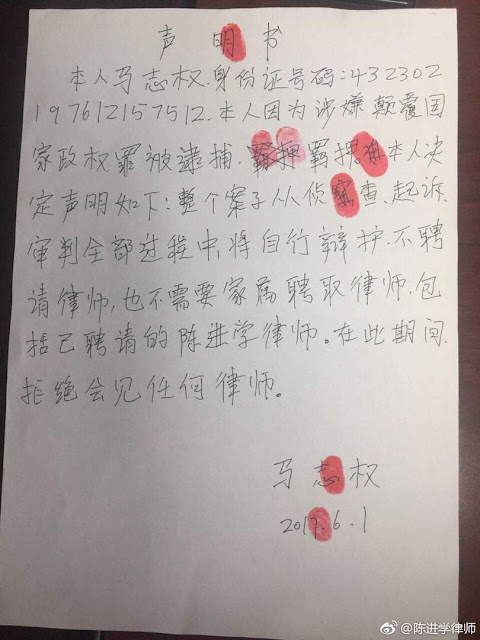 声明书
本人马志权.身份证号码:432302
197612157512.本人因为涉嫌颠覆国
家政权罪被逮捕.羁押.本人决
定声明如下:整个案子从侦查.起诉.
审判全部过程中,将自行辩护.不聘
请律师,也不需要家属聘取律师.包
括已聘请的陈进学律师。在此期间.
拒绝会见任何律师。
马志权
2017.6.1
@陈进学律师